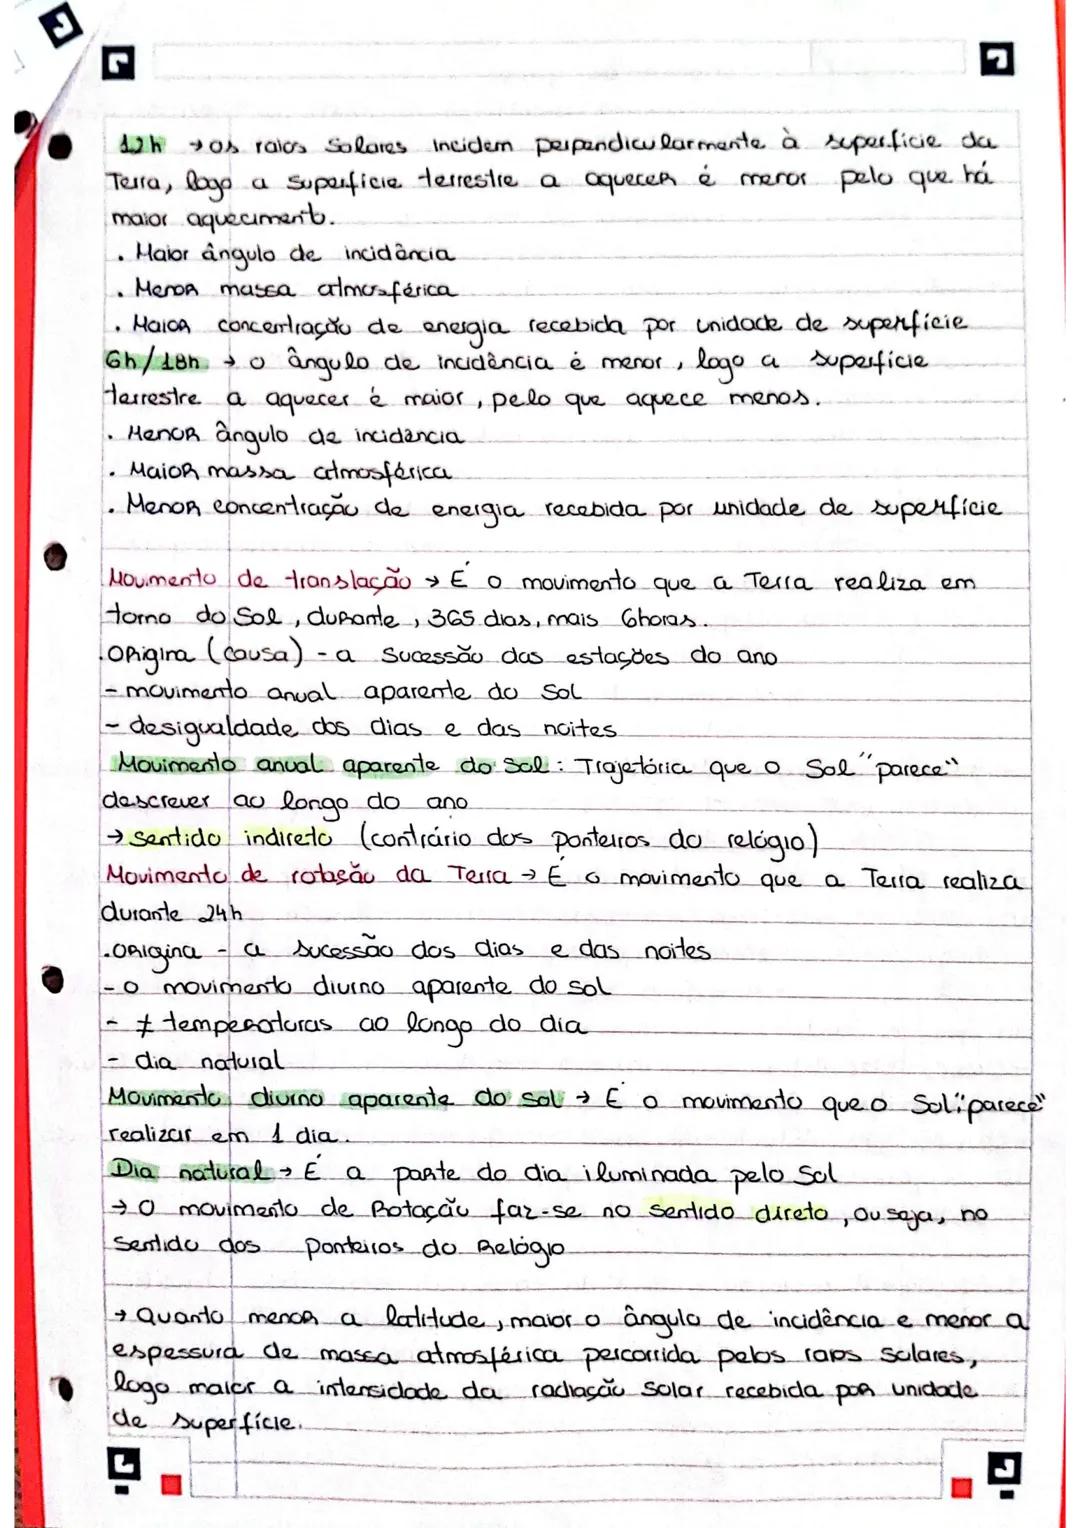 12h → os raios solares incidem perpendicularmente à superfície da
Terra, logo a superfície terrestre a aquecer é menor pelo que há
maior aquecimento.
. Maior ângulo de incidência
. Menor massa atmosférica
. Maior concentração de energia recebida por unidade de superfície
6h/18h → o ângulo de incidência é menor, logo a superfície
terrestre a aquecer é maior, pelo que aquece menos.
. Menor ângulo de incidância
. Maior massa atmosférica
. Menor concentração de energia recebida por unidade de superfície
Movimento de translação → É o movimento que a Terra realiza em
torno do Sol, durante, 365 dias, mais 6horas.
.Origina (causa) - a sucessão das estações do ano
- movimento anual aparente do Sol
- desigualdade dos dias e das noites
Movimento anual aparente do Sol: Trajetória que o Sol "parece"
descrever ao longo do ano
→ Sentido indireto (contrário dos ponteiros do relógio)
Movimento de rotação da Terra → É o movimento que a Terra realiza
durante 24h
.Origina - a sucessão dos dias e das noites
- o movimento diurno aparente do sol
- ≠ temperaturas ao longo do dia
- dia natural
Movimento diurno aparente do sol → É o movimento que o Sol "parece"
realizar em 1 dia.
Dia natural → É a parte do dia iluminada pelo Sol
→ O movimento de Rotação faz-se no sentido direto, ou seja, no
sentido dos ponteiros do Relógio
→ Quanto menor a latitude, maior o ângulo de incidência e menor a
espessura de massa atmosférica percorrida pelos raios solares,
logo maior a intensidade da radiação solar recebida por unidade
de superfície.